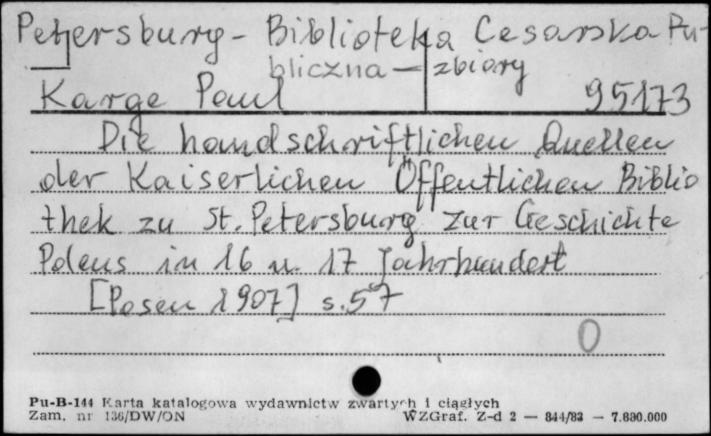 Petersburg - Biblioteka Cesarska Pu-
bliczna - zbiory
Karge Paul 95173
Die handschriftlichen Quellen
der Kaiserlichen Öffentlichen Biblio
thek zu St. Petersburg zur Geschichte
Polens in 16 u. 17 Jahrhundert
[Posen 1907] s. 57
0
Pu-B-144 Karta katalogowa wydawnictw zwartych i ciągłych
Zam. nr 136/DW/ON WZGraf. Z-d 2 — 844/83 — 7.890.000